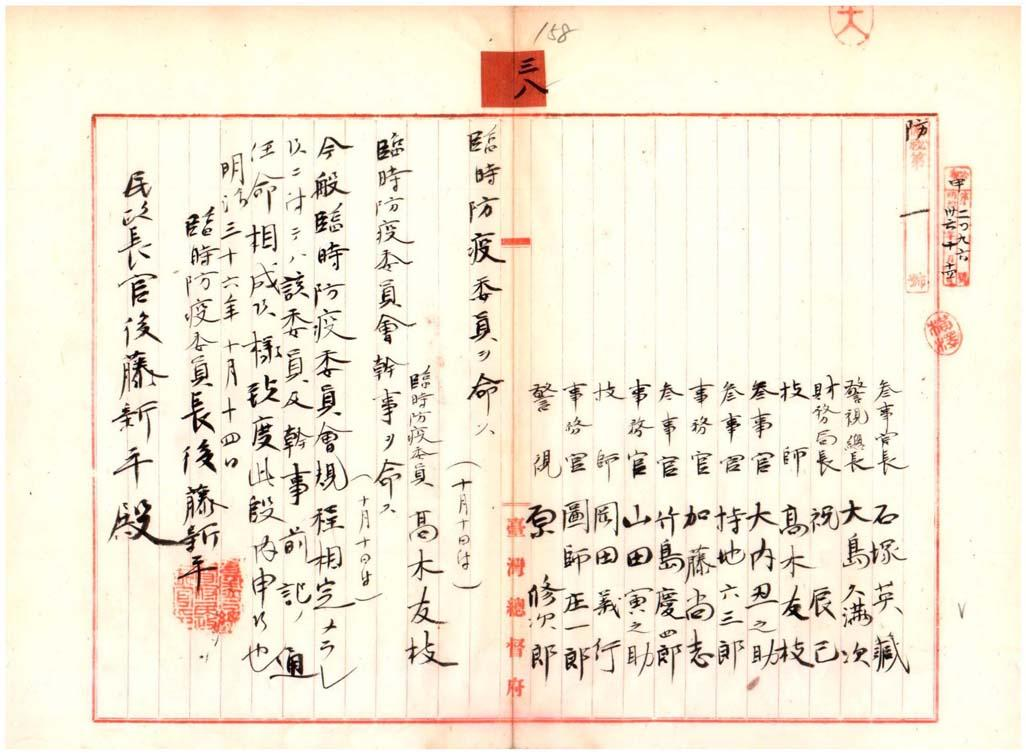 158
三八
防
秘第
一
號
甲
二〇九六
卅六
十
参事官長 石塚英藏
警視總長 大島久滿次
財務局長 祝辰巳
技師 髙木友枝
参事官 大内丑之助
参事官 持地六三郎
事務官 加藤尚志
参事官 竹島慶四郎
事務官 山田寅之助
技師 岡田義行
事務官 圖師庄一郎
警視 原修次郎
臨時防疫委員ヲ命ス
(十月十日付)
臨時防疫委員 髙木友枝
臨時防疫委員會幹事ヲ命ス
(十月十日付)
今般臨時防疫委員會規程相定メラレ
候ニ付テハ該委員及幹事前記ノ通
任命相成候樣致度此段内申候也
明治三十六年十月十四日
臨時防疫委員長後藤新平
民政長官後藤新平殿
臺灣總督府